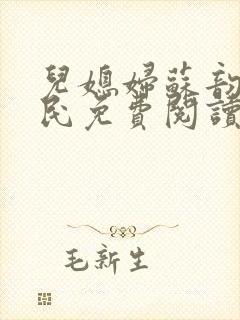 兒媳婦蘇韵
民免費閱讀
毛新生